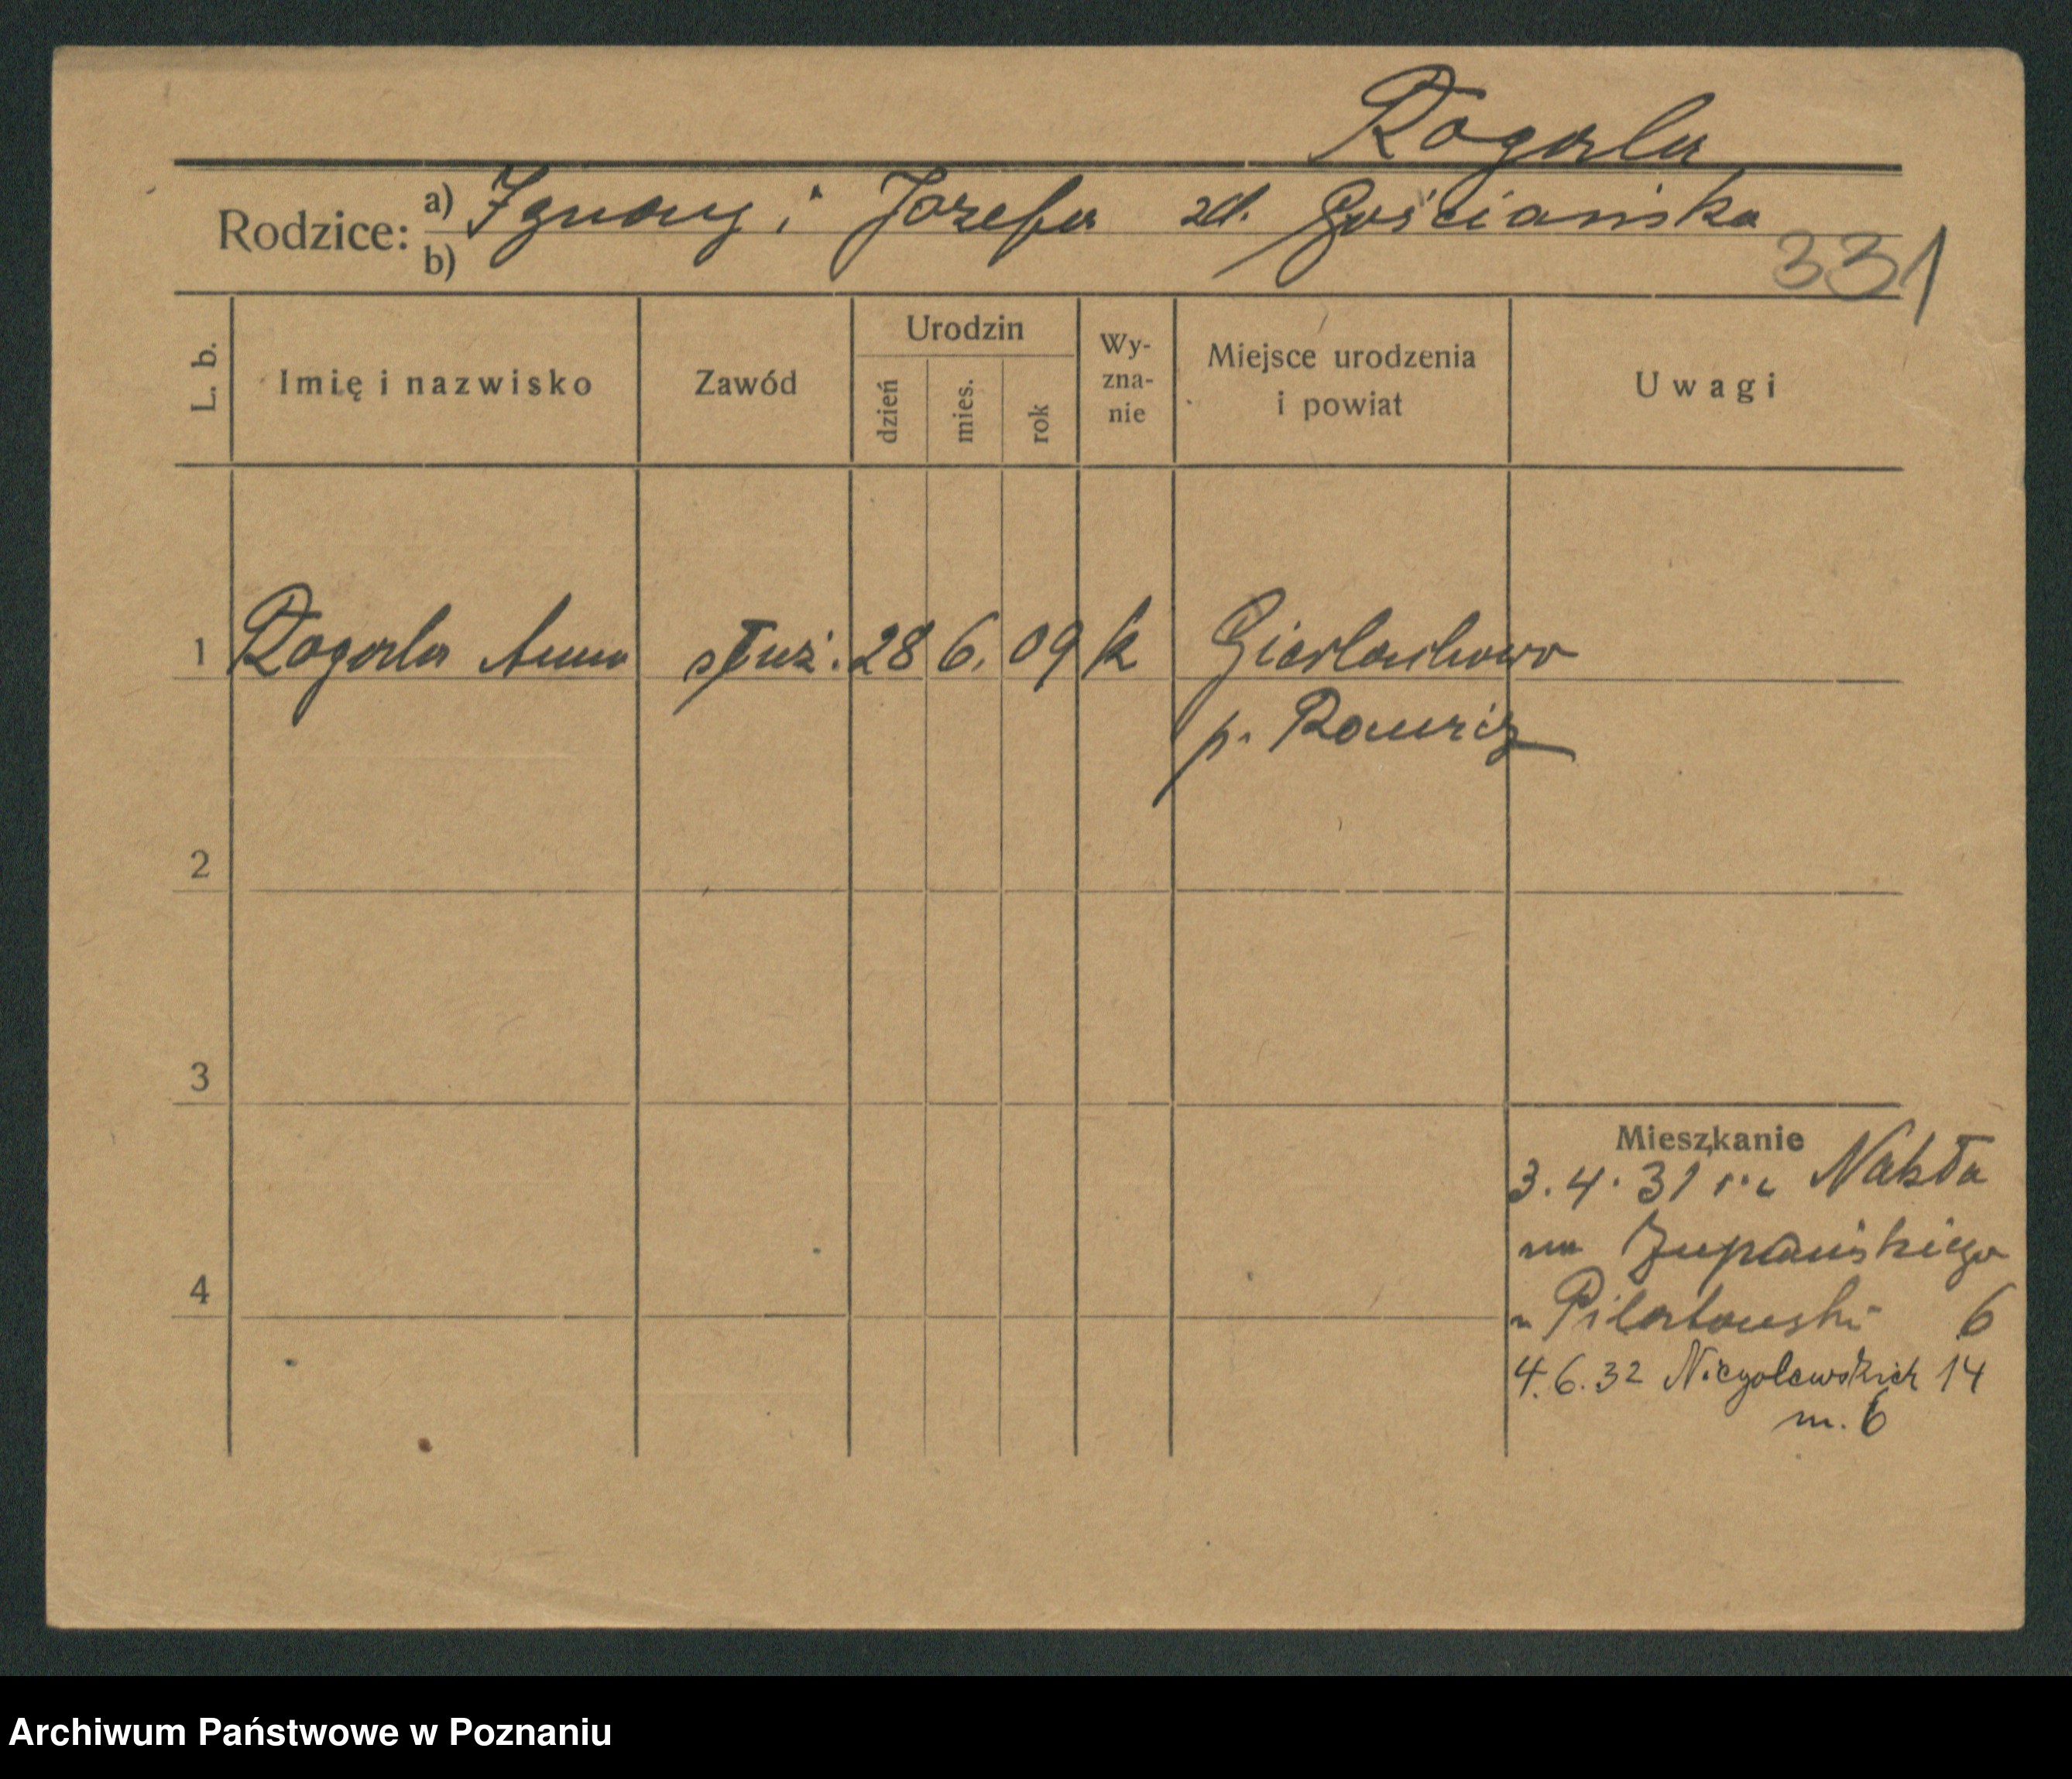 Rogala
Rodzice: a) Ignacy i Józefa zd. Gościańska
b)
331
L. b. Imię i nazwisko Zawód Urodzin dzień mies. rok Wy-zna-nie Miejsce urodzenia i powiat Uwagi
1 Rogala Anna służ. 28 6. 09 k Gierlachowo
p. Rawicz
2
3
4
Mieszkanie
3.4.31 Nakła
na Żupańskiego
u Pilatowski 6
4.6.32 Niegolewskich 14
m. 6
Archiwum Państwowe w Poznaniu